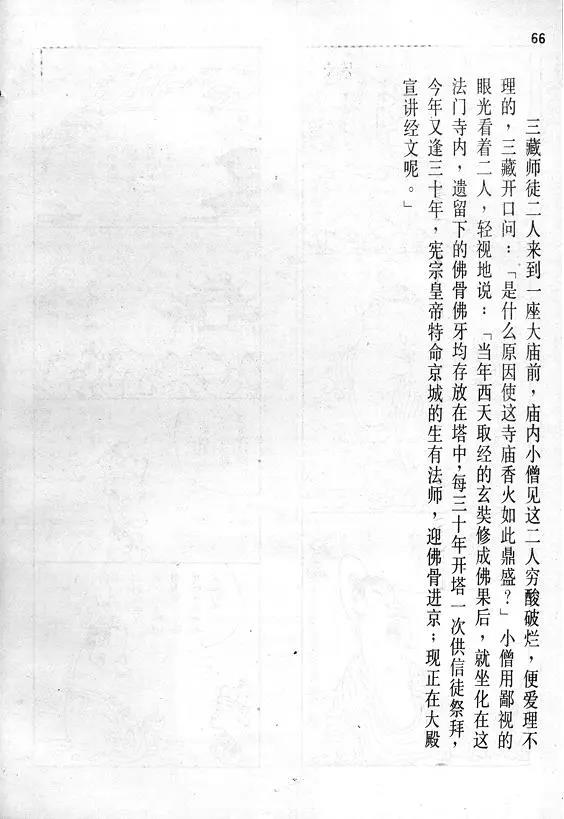 66
三藏师徒二人来到一座大庙前，庙内小僧见这二人穷酸破烂，便爱理不
理的，三藏开口问：「是什么原因使这寺庙香火如此鼎盛？」小僧用鄙视的
眼光看着二人，轻视地说：「当年西天取经的玄奘修成佛果后，就坐化在这
法门寺内，遗留下的佛骨佛牙均存放在塔中，每三十年开塔一次供信徒祭拜，
今年又逢三十年，宪宗皇帝特命京城的生有法师，迎佛骨进京；现正在大殿
宣讲经文呢。」